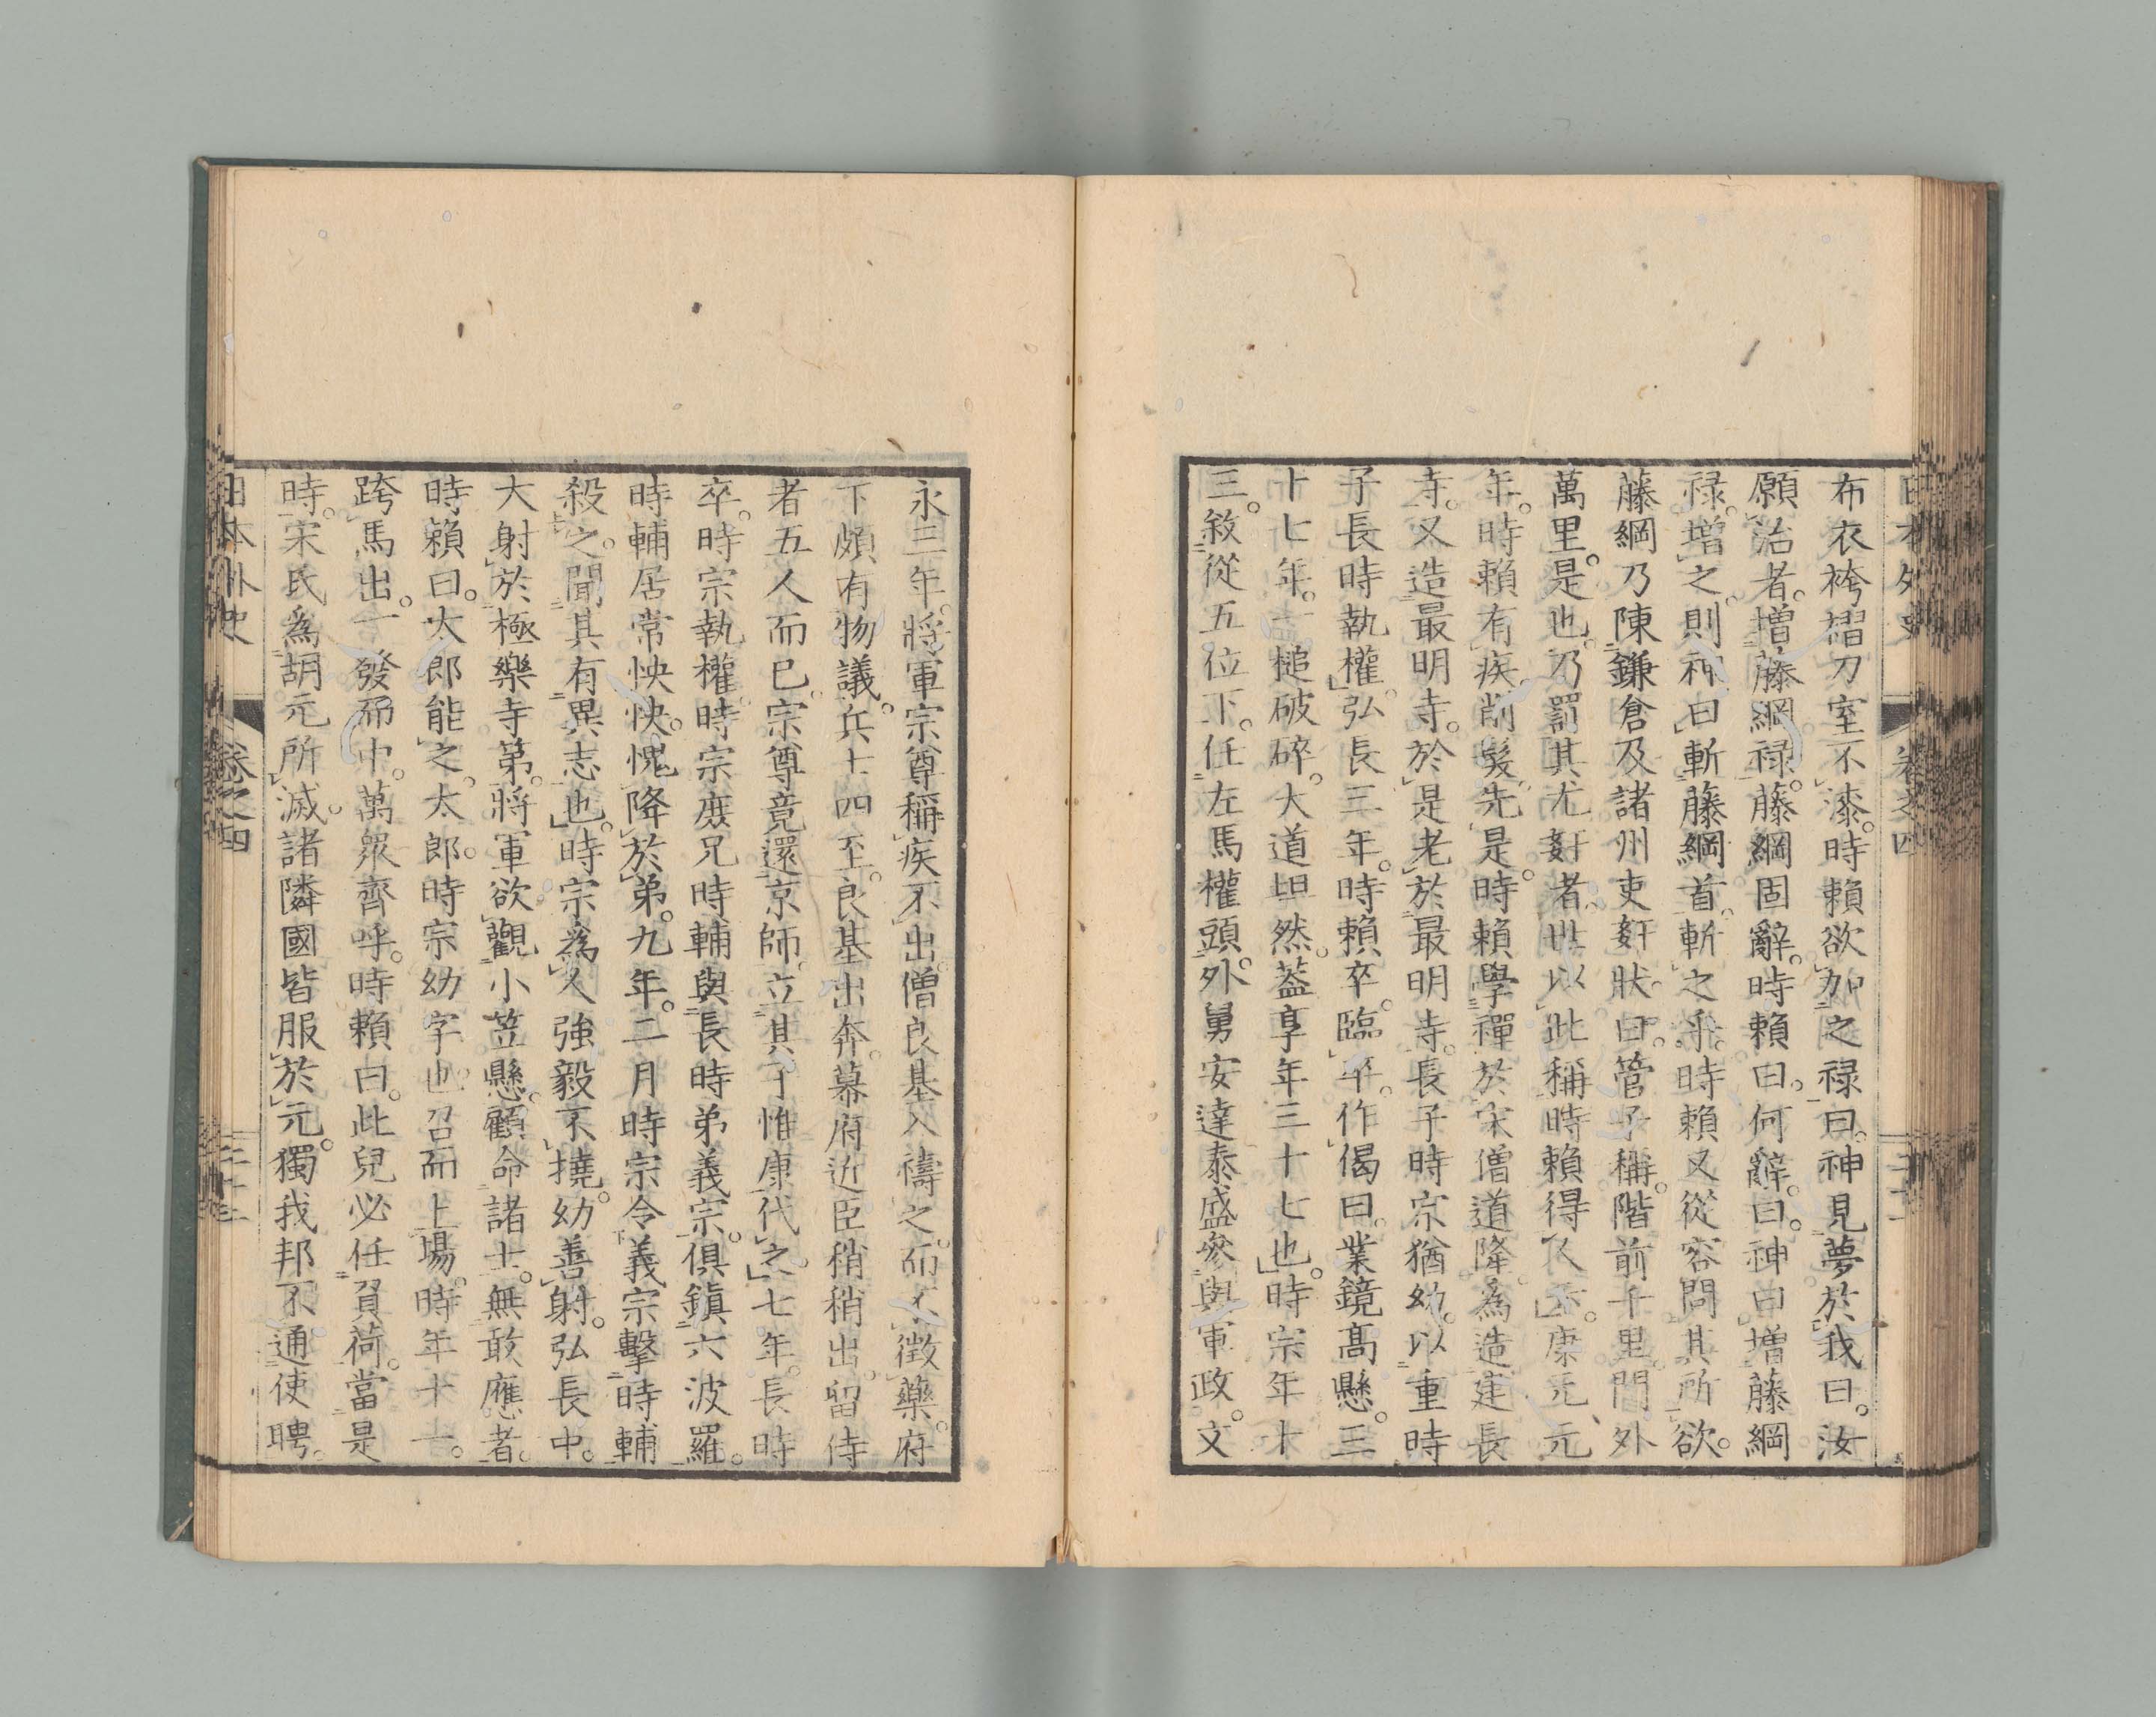 日本外史 卷之四 二十二
布衣袴褶刀室不漆。時賴欲加之祿曰。神見夢於我曰。汝
願治者。増藤綱祿。藤綱固辭。時賴曰。何辭。曰。神曰増藤綱
祿。増之。則神曰斬藤綱首。斬之乎。時賴又從容問其所欲。
藤綱乃陳鎌倉及諸州吏姧狀。曰。管子稱。階前千里。門外
萬里。是也。乃罰其尤姧者。世以此稱時賴得人云。康元元
年。時賴有疾。削髮。先是。時賴學禪於宋僧道隆。為造建長
寺。又造最明寺。於是老於最明寺。長子時宗猶幼。以重時
子長時執權。弘長三年。時賴卒。臨卒。作偈曰。業鏡高懸。三
十七年。一槌破碎。大道坦然。葢享年三十七也。時宗年十
三。敘從五位下。任左馬權頭。外舅安達泰盛參與軍政。文
永三年。將軍宗尊稱疾不出。僧良基入禱之。而不徵藥。府
下頗有物議。兵士四至。良基出奔。幕府近臣稍稍出。留侍
者五人而已。宗尊竟還京師。立其子惟康代之。七年。長時
卒。時宗執權。時宗庶兄時輔與長時弟義宗。俱鎭六波羅。
時輔居常怏怏。愧降於弟。九年。二月時宗令義宗擊時輔
殺之。聞其有異志也。時宗為人強毅不撓。幼善射。弘長中。
大射於極樂寺第。將軍欲觀小笠懸。顧命諸士。無敢應者。
時賴曰。太郎能之。太郎。時宗幼字也。召而上場。時年十一。
跨馬出。一發而中。萬衆齊呼。時賴曰。此兒必任負荷。當是
時。宋氏為胡元所滅。諸隣國皆服於元。獨我邦不通使聘。
日本外史 卷之四 二十二